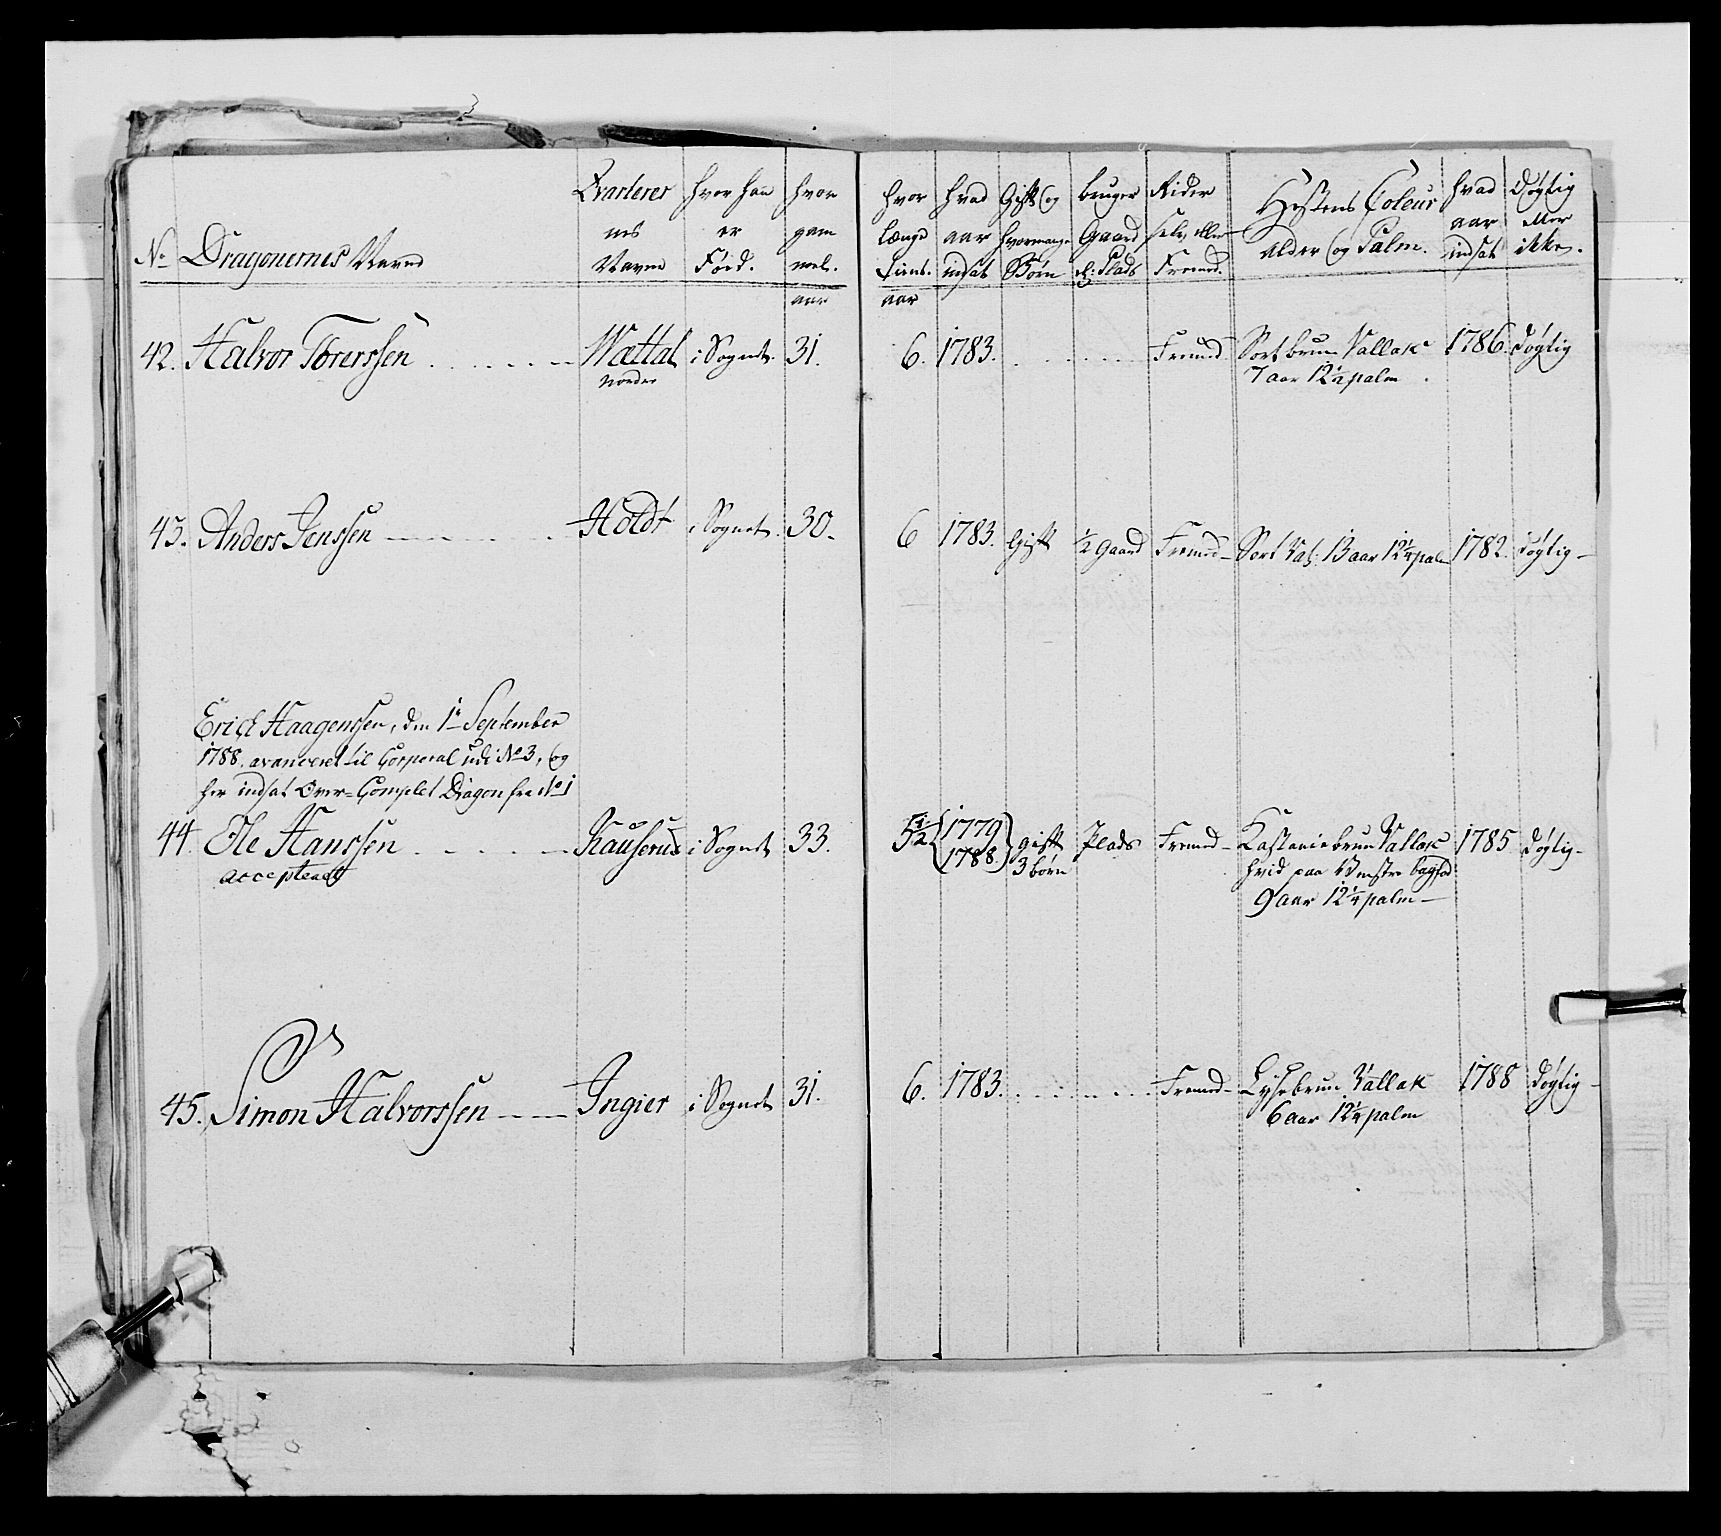 No Dragonernes Navne | Qvarterer nes Navne | hvor han er Föed. | hvor gam mel. aar | hvor længe tient. aar | hvad aar indsat | Gift og hvormange Börn | bruger Gaard el: Plads | Rider selv eller Fremd. | Hestens Coleur alder og Palm. | hvad aar indsat | Dögtig eller ikke.
42. Halvor Torerssen | Wættal nordre | i Sognet. | 31. | 6. | 1783. | Fremd | Sort bruun Vallak 7 aar 12½ palm | 1786. | Dögtig
43. Anders Jenssen | Holdt | i Sognet. | 30. | 6 | 1783. | Gift | ½ Gaard | Fremd | Sort Val: 13 aar 12¼ palm | 1782. | Dögtig
Erich Haagenssen, den 1te September
1788. avanceret til Corporal udi No 3, og
her indsat Over-Complet Dragon fra No 1
44. Ole Hanssen acceptered | Kauserud | i Sognet | 33. | 5½ | 1779 1788. | gift 3 börn | Plads | Fremd | Kastaniebruun Vallak hvid paa Venstre bagfod 9 aar 12¼ palm | 1785 | Dögtig
45. Simon Halvorssen | Ingier | i Sognet | 31. | 6. | 1783. | Fremd | Lysebruun Vallak 6 aar 12¼ palm | 1788 | Dögtig